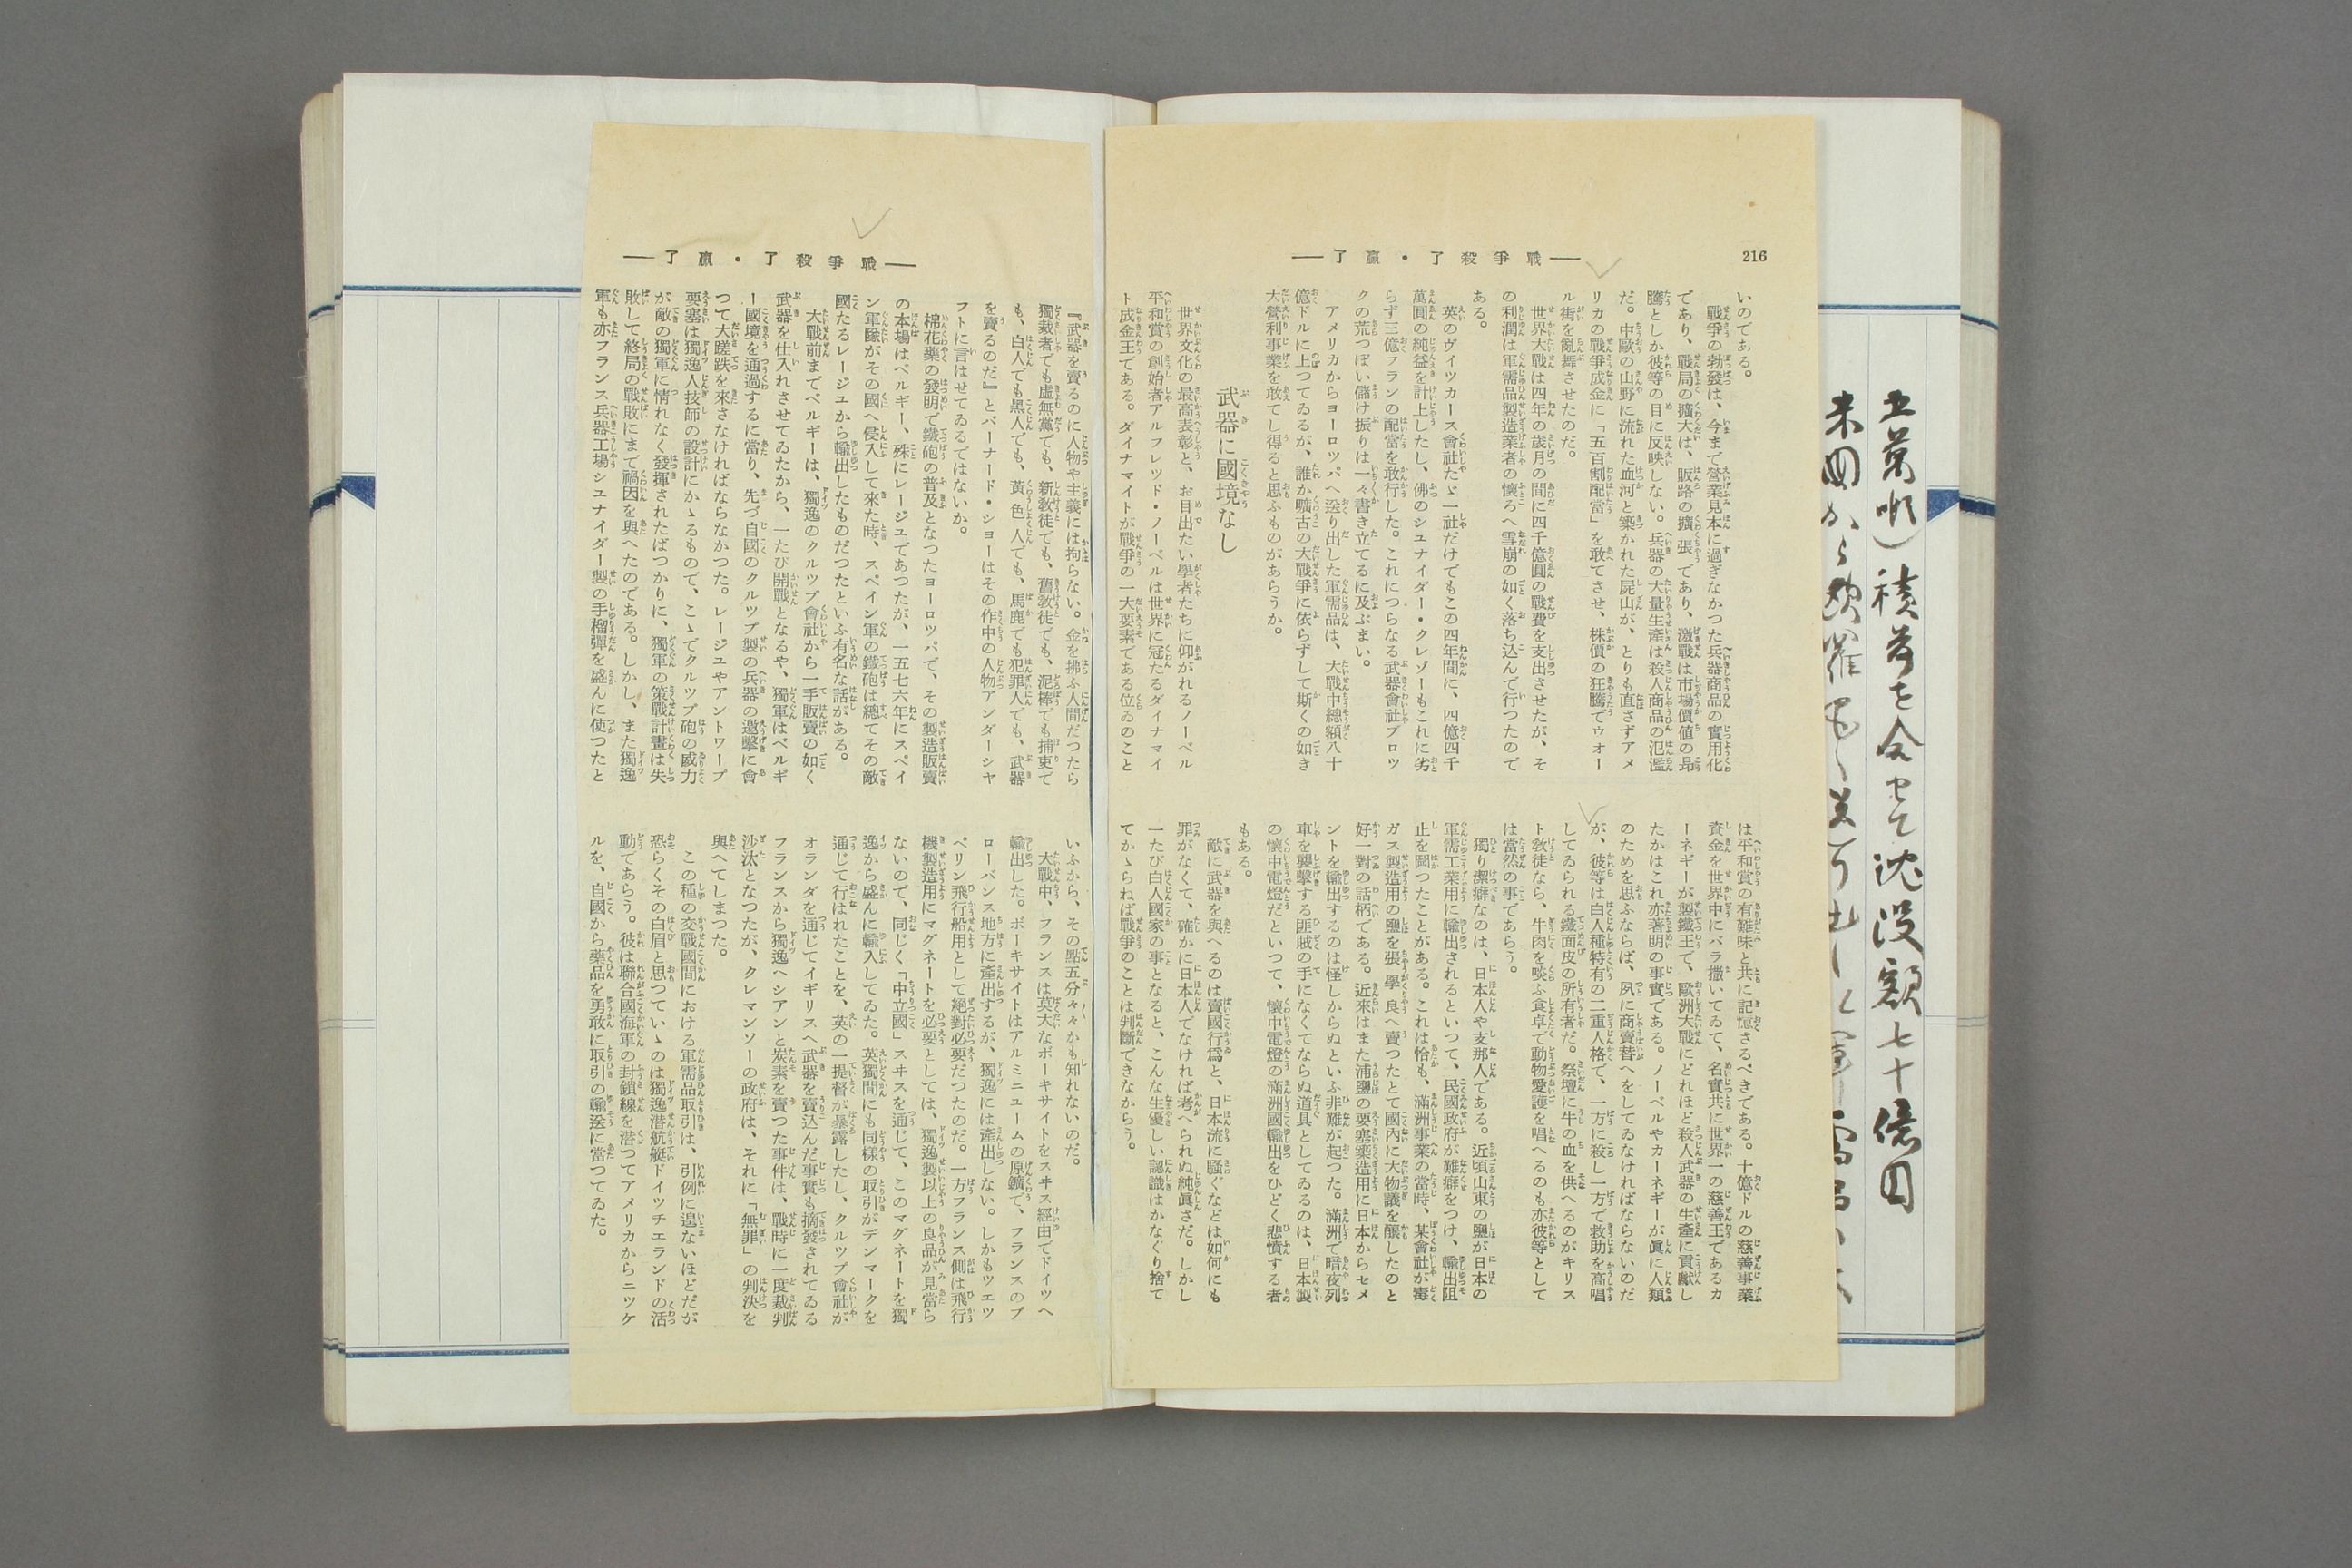 五萬噸）積荷を合せて沈没額七十億円
米国から欧羅巴へ
216
―了贏・了殺爭戰―
いのである。
戰爭の勃發は、今まで營業見本に過ぎなかつた兵器商品の實用化
であり、戰局の擴大は、販路の擴張であり、激戰は市場價値の昻
騰としか彼等の目に反映しない。兵器の大量生產は殺人商品の氾濫
だ。中歐の山野に流れた血河と築かれた屍山が、とりも直さずアメ
リカの戰爭成金に「五百割配當」を敢てさせ、株價の狂騰でウォー
ル街を亂舞させたのだ。
世界大戰は四年の歲月の間に四千億圓の戰費を支出させたが、そ
の利潤は軍需品製造業者の懷ろへ雪崩の如く落ち込んで行つたので
ある。
英のヴイツカース會社たゞ一社だけでもこの四年間に、四億四千
萬圓の純益を計上したし、佛のシユナイダー・クレゾーもこれに劣
らず三億フランの配當を敢行した。これにつらなる武器會社ブロツ
クの荒つぽい儲け振りは一々書き立てるに及ぶまい。
アメリカからヨーロツパへ送り出した軍需品は、大戰中總額八十
億ドルに上つてゐるが、誰か曠古の大戰爭に依らずして斯くの如き
大營利事業を敢てし得ると思ふものがあらうか。
武器に國境なし
世界文化の最高表彰と、お目出たい學者たちに仰がれるノーベル
平和賞の創始者アルフレッド・ノーベルは世界に冠たるダイナマイ
ト成金王である。ダイナマイトが戰爭の一大要素である位ゐのこと
は平和賞の有難味と共に記憶さるべきである。十億ドルの慈善事業
資金を世界中にバラ撒いてゐて、名實共に世界一の慈善王であるカ
ーネギーが製鐵王で、歐洲大戰にどれほど殺人武器の生產に貢獻し
たかはこれ亦著明の事實である。ノーベルやカーネギーが眞に人類
のためを思ふならば、夙に商賣替へをしてゐなければならないのだ
が、彼等は白人種特有の二重人格で、一方に殺し一方で救助を高唱
してゐられる鐵面皮の所有者だ。祭壇に牛の血を供へるのがキリス
ト敎徒なら、牛肉を啖ふ食卓で動物愛護を唱へるのも亦彼等として
は當然の事であらう。
獨り潔癖なのは、日本人や支那人である。近頃山東の鹽が日本の
軍需工業用に輸出されるといつて、民國政府が難癖をつけ、輸出阻
止を圖つたことがある。これは恰も、滿洲事業の當時、某會社が毒
ガス製造用の鹽を張學良へ賣つたとて國內に大物議を釀したのと
好一對の話柄である。近來はまた浦鹽の要塞築造用に日本からセメ
ントを輸出するのは怪しからぬといふ非難が起つた。滿洲で暗夜列
車を襲擊する匪賊の手になくてならぬ道具としてゐるのは、日本製
の懷中電燈だといつて、懷中電燈の滿洲國輸出をひどく悲憤する者
もある。
敵に武器を與へるのは賣國行爲と、日本流に騷ぐなどは如何にも
罪がなくて、確かに日本人でなければ考へられぬ純眞さだ。しかし
一たび白人國家の事となると、こんな生優しい認識はかなぐり捨て
てかゝらねば戰爭のことは判斷できなからう。
―了贏・了殺爭戰―
『武器を賣るのに人物や主義には拘らない。金を拂ふ人間だつたら
獨裁者でも虛無黨でも、新敎徒でも、舊敎徒でも、泥棒でも捕吏で
も、白人でも黑人でも、黃色人でも、馬鹿でも犯罪人でも、武器
を賣るのだ』とバーナード・ショーはその作中の人物アンダーシャ
フトに言はせてゐるではないか。
棉花藥の發明で鐵砲の普及となつたヨーロツパで、その製造販賣
の本場はベルギー、殊にレージユであつたが、一五七六年にスペイ
ン軍隊がその國へ侵入して來た時、スペイン軍の鐵砲は總てその敵
國たるレージユから輸出したものだつたといふ有名な話がある。
大戰前までベルギーは、獨逸のクルツプ會社から一手販賣の如く
武器を仕入れさせてゐたから、一たび開戰となるや、獨軍はベルギ
ー國境を通過するに當り、先づ自國のクルツプ製の兵器の邀擊に會
つて大蹉跌を來さなければならなかつた。レージユやアントワープ
要塞は獨逸人技師の設計にかゝるもので、こゝでクルツプ砲の威力
が敵の獨軍に惜れなく發揮されたばつかりに、獨軍の策戰計畫は失
敗して終局の戰敗にまで禍因を與へたのである。しかし、また獨逸
軍も亦フランス兵器工場シユナイダー製の手榴彈を盛んに使つたと
いふから、その點五分々々かも知れないのだ。
大戰中、フランスは莫大なボーキサイトをスヰス經由でドイツへ
輸出した。ボーキサイトはアルミニユームの原鑛で、フランスのプ
ローバンス地方に產出するが、獨逸には產出しない。しかもツエツ
ペリン飛行船用として絕對必要だつたのだ。一方フランス側は飛行
機製造用にマグネートを必要としては、獨逸製以上の良品が見當ら
ないので、同じく「中立國」スヰスを通じて、このマグネートを獨
逸から盛んに輸入してゐた。英獨間にも同樣の取引がデンマークを
通じて行はれたことを、英の一提督が暴露したし、クルツプ會社が
オランダを通じてイギリスへ武器を賣込んだ事實も摘發されてゐる
フランスから獨逸へシアンと炭素を賣つた事件は、戰時に一度裁判
沙汰となつたが、クレマンソーの政府は、それに「無罪」の判決を
與へてしまつた。
この種の交戰國間における軍需品取引は、引例に遑ないほどだが
恐らくその白眉と思つていゝのは獨逸潜航艇ドイツチエランドの活
動であらう。彼は聯合國海軍の封鎖線を潜つてアメリカからニツケ
ルを、自國から藥品を勇敢に取引の輸送に當つてゐた。